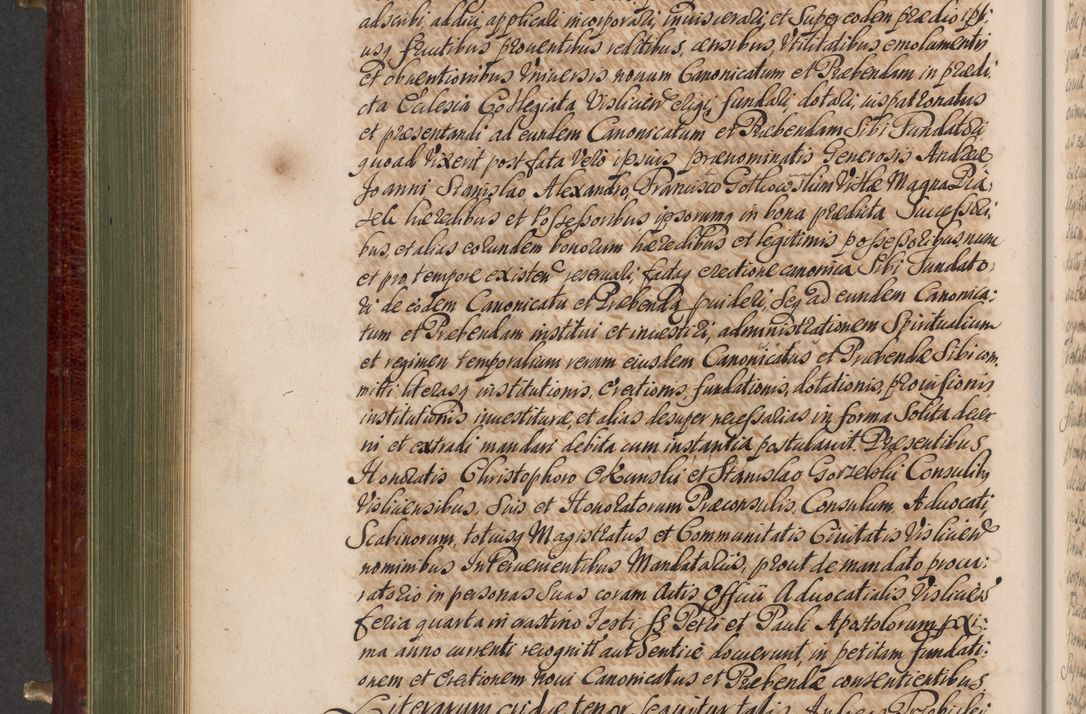 adscribi, addici, applicari incorporari, inviscerari, et Super eodem prædio ips:
usq fructibus proventibus reditibus, censibus, Utilitatibus emolumentis
et obventionibus Universis novum Canonicatum et Præbendam in prædi
cta Ecclesia Collegiata Vislicien erigi, fundari, dotari, iuspatronatus
et præsentandi ad eundem Canonicatum et Præbendam Sibi Fundatori
quoad Vixerit post fata Verò ipsius prænominatis Generosis Andreæ
Joanni Stanislao Alexandro, Francisco Vistæ Magna
hæredibus et Possessoribus ipsorumq in bona prædicta Successori
bus, et alias eorundem bonorum hæredibus et legitimis possessoribus nunc
et pro tempore existen reservari, factaq erectione canonica Sibi Fundato:
ri de eodem Canonicatu et Præbenda provideri, Seq ad eundem Canonica:
tum et Præbendam institui et investiri, administrationem Spiritualium
et regimen temporalium rerum eiusdem Canonicatus et Præbendæ Sibi com
mitti literasq institutionis, Erectionis, fundationis, dotationis, provisionis
institutionis investituræ, et alias desuper necessarias in forma Solita decer
ni et extradi mandari debita cum instantia postulavit. Præsentibus
Honoratis Christophoro Okunski et Stanislao Gorzelski Consulibq
Visliciensibus, Suis et Honoratorum Præconsulis, Consulum, Advocati,
Scabinorum, totiusq Magistratus et Communitatis Civitatis Vislicien
nominibus Intervenientibus Mandatariis, prout de mandato procu:
ratorio in personas Suas coram Actis Officii Advocatialis Vislicien
feria quarta in crastino Festi SS Petri et Pauli Apostolorum proxi:
ma anno currenti recognitt authenticè docuerunt, in petitam fundati:
onem et Erectionem novi Canonicatus et Præbendæ consentientibus
Literarum tenor Sequitur talis